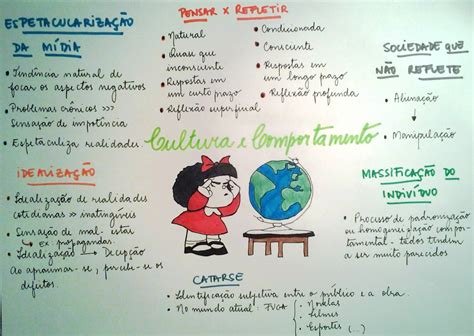 ESPETACULARIZAÇÃO
DA MÍDIA
• Tendência natural de
focar os aspectos negativos
• Problemas crônicos >>>
Sensação de impotência
• Espetaculiza realidades
PENSAR X REFLETIR
• Natural
• Quase que
inconsciente
• Respostas em
um curto prazo
• Reflexão superficial
• Condicionada
• Consciente
• Respostas em
um longo prazo
• Reflexão profunda
SOCIEDADE QUE
NÃO REFLETE
• Alienação
• Manipulação
Cultura e Comportamento
IDEALIZAÇÃO
• Idealização de realidades
cotidianas → inatingíveis
• Sensação de mal-estar
ex. propagandas
• Idealização → Decepção
Ao aproximar-se, percebe-se os
defeitos.
MASSIFICAÇÃO DO
INDIVÍDUO
• Processo de padronização
ou homogeneização compor-
tamental - todos tendem
a ser muito parecidos
CATARSE
• Identificação subjetiva entre o público e a obra.
• No mundo atual: FUGA
• Novelas
• Filmes
• Esportes (...)